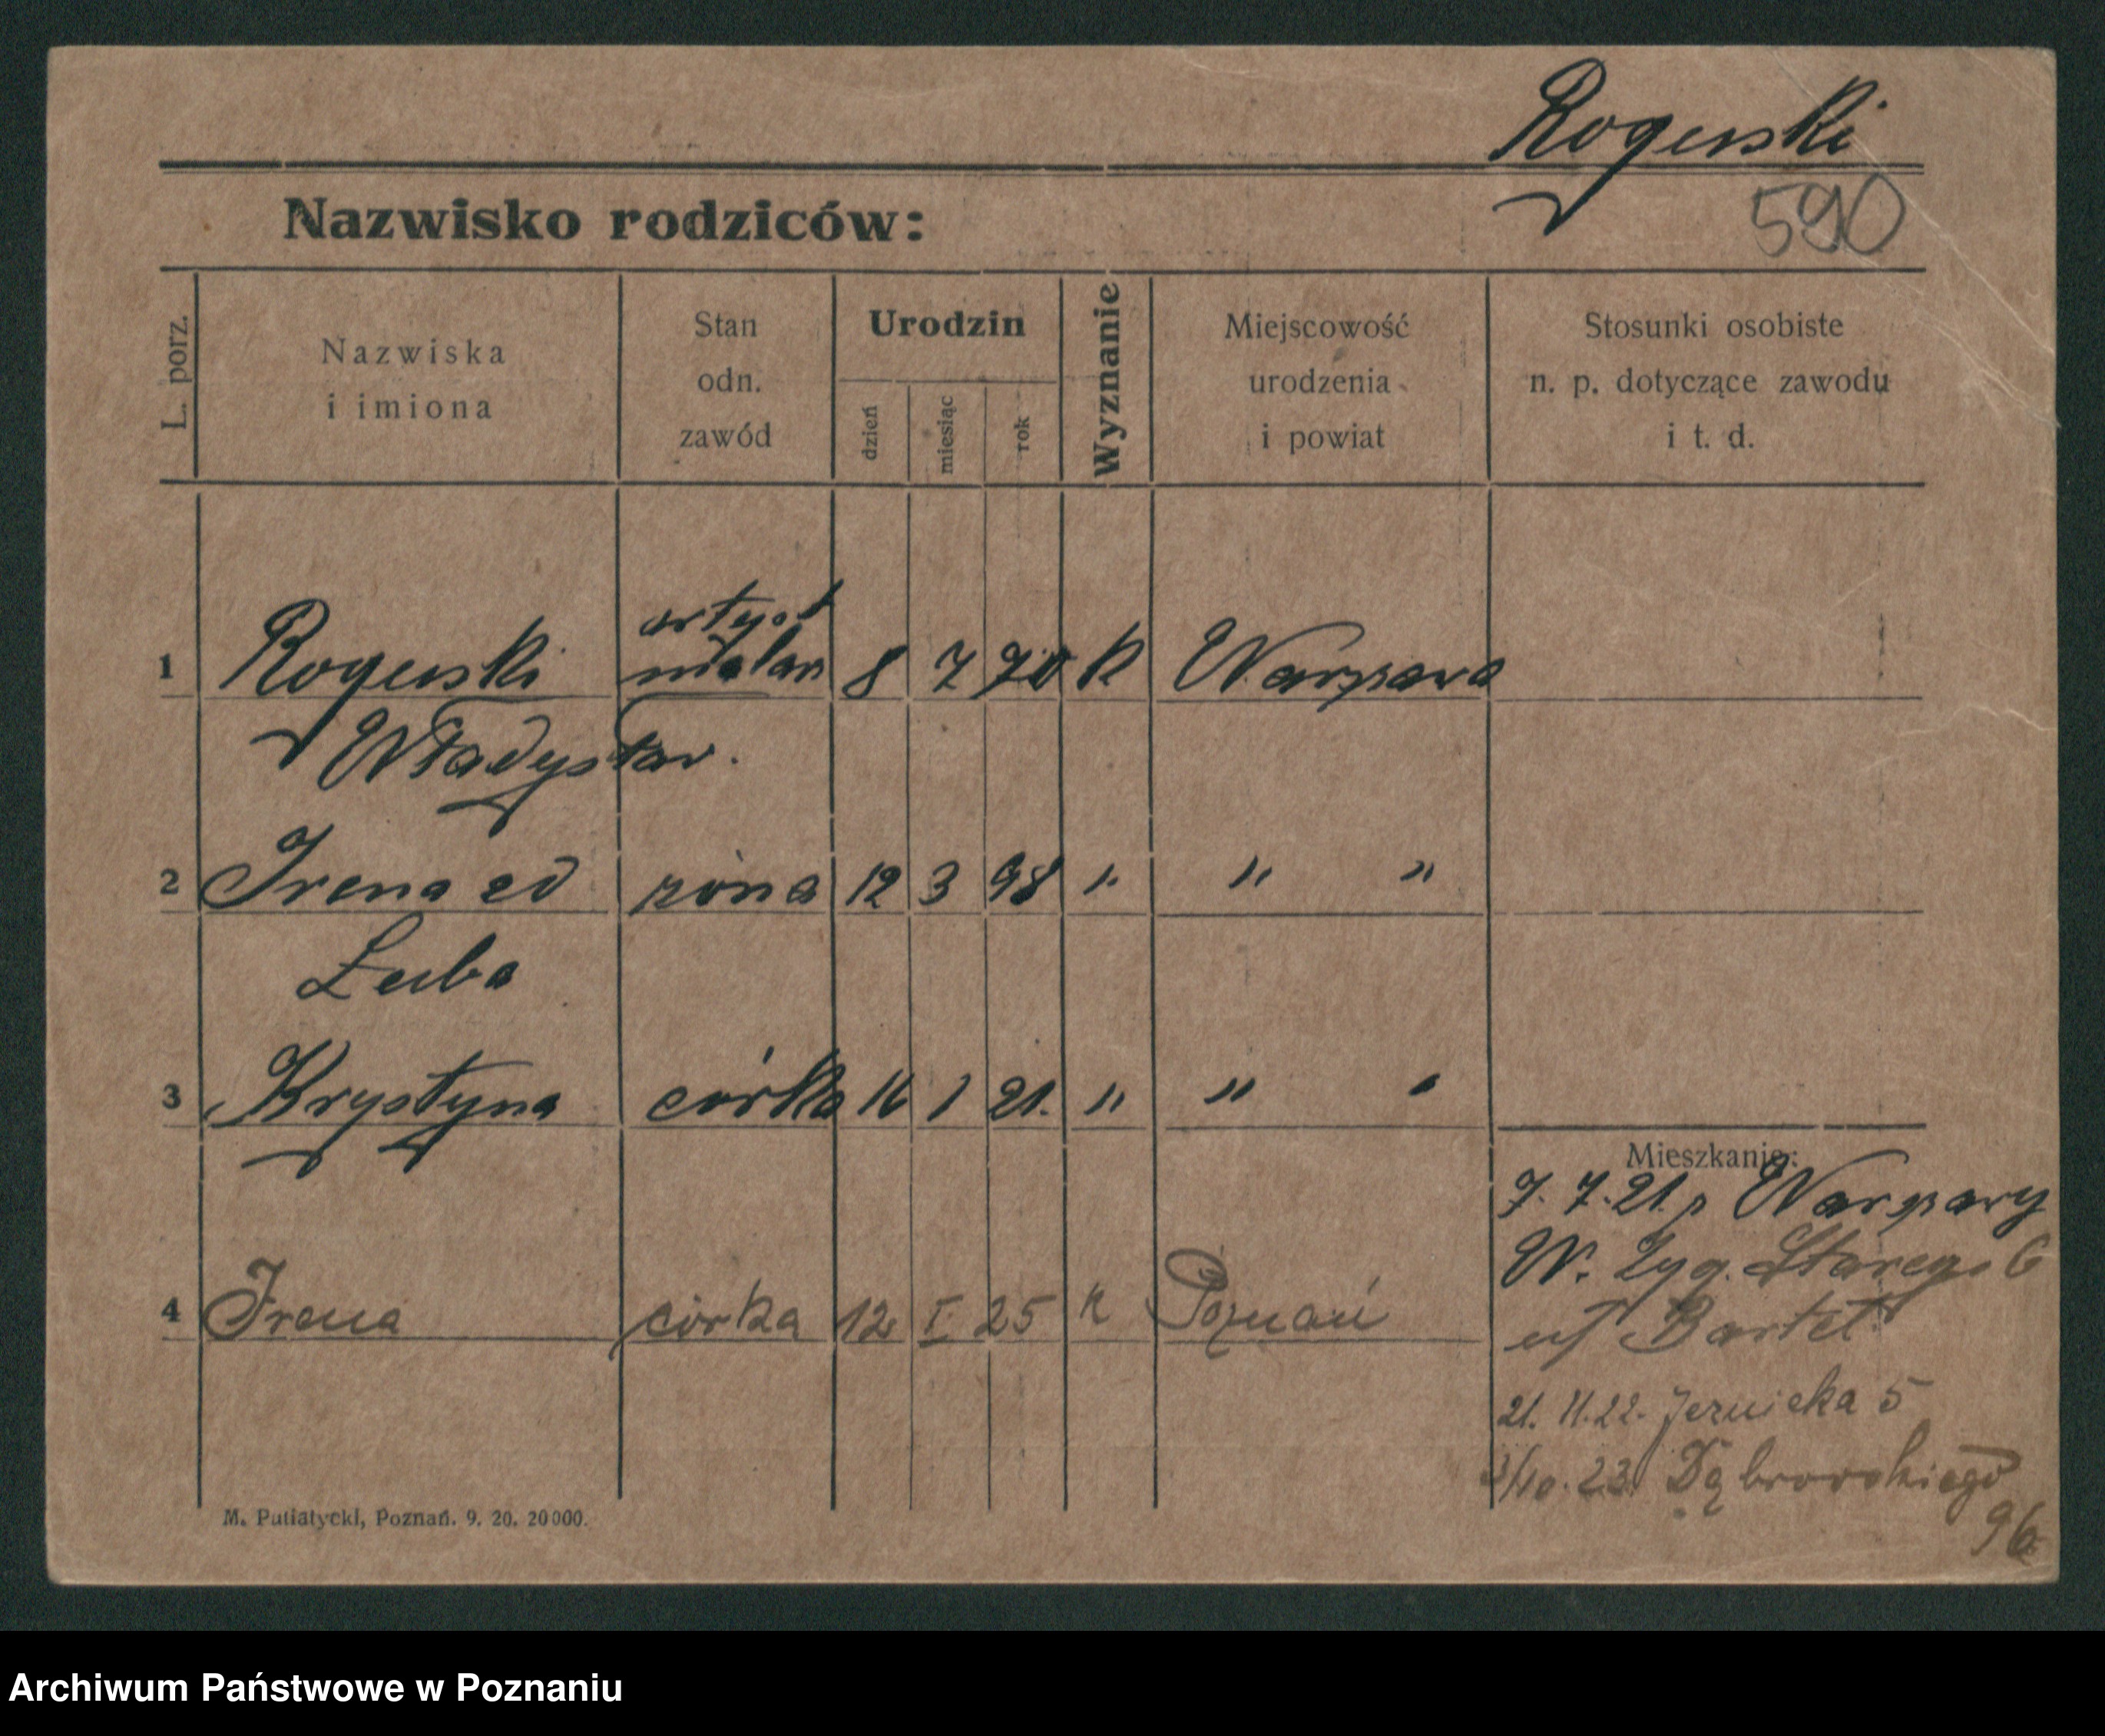 Rogerski
590
Nazwisko rodziców:
L. porz.
Nazwiska
i imiona
Stan
odn.
zawód
Urodzin
dzień
miesiąc
rok
Wyznanie
Miejscowość
urodzenia
i powiat
Stosunki osobiste
n. p. dotyczące zawodu
i t. d.
artyst
1 Rogerski malarz 8 7 70 k Warszawa
Władysław.
2 Irena zd żona 12 3 98 " " "
3 Krystyna córka 1 21. " " "
Mieszkanie:
7. 7. 21. z Warszawy
W. Zyg. Starego 6
4 Irena córka 12 I 25 k Poznań
Bartel
21. 11. 22. 5
10. 23. Dąbrowskiego
96
M. Putiatycki, Poznań. 9. 20. 20000.
Archiwum Państwowe w Poznaniu